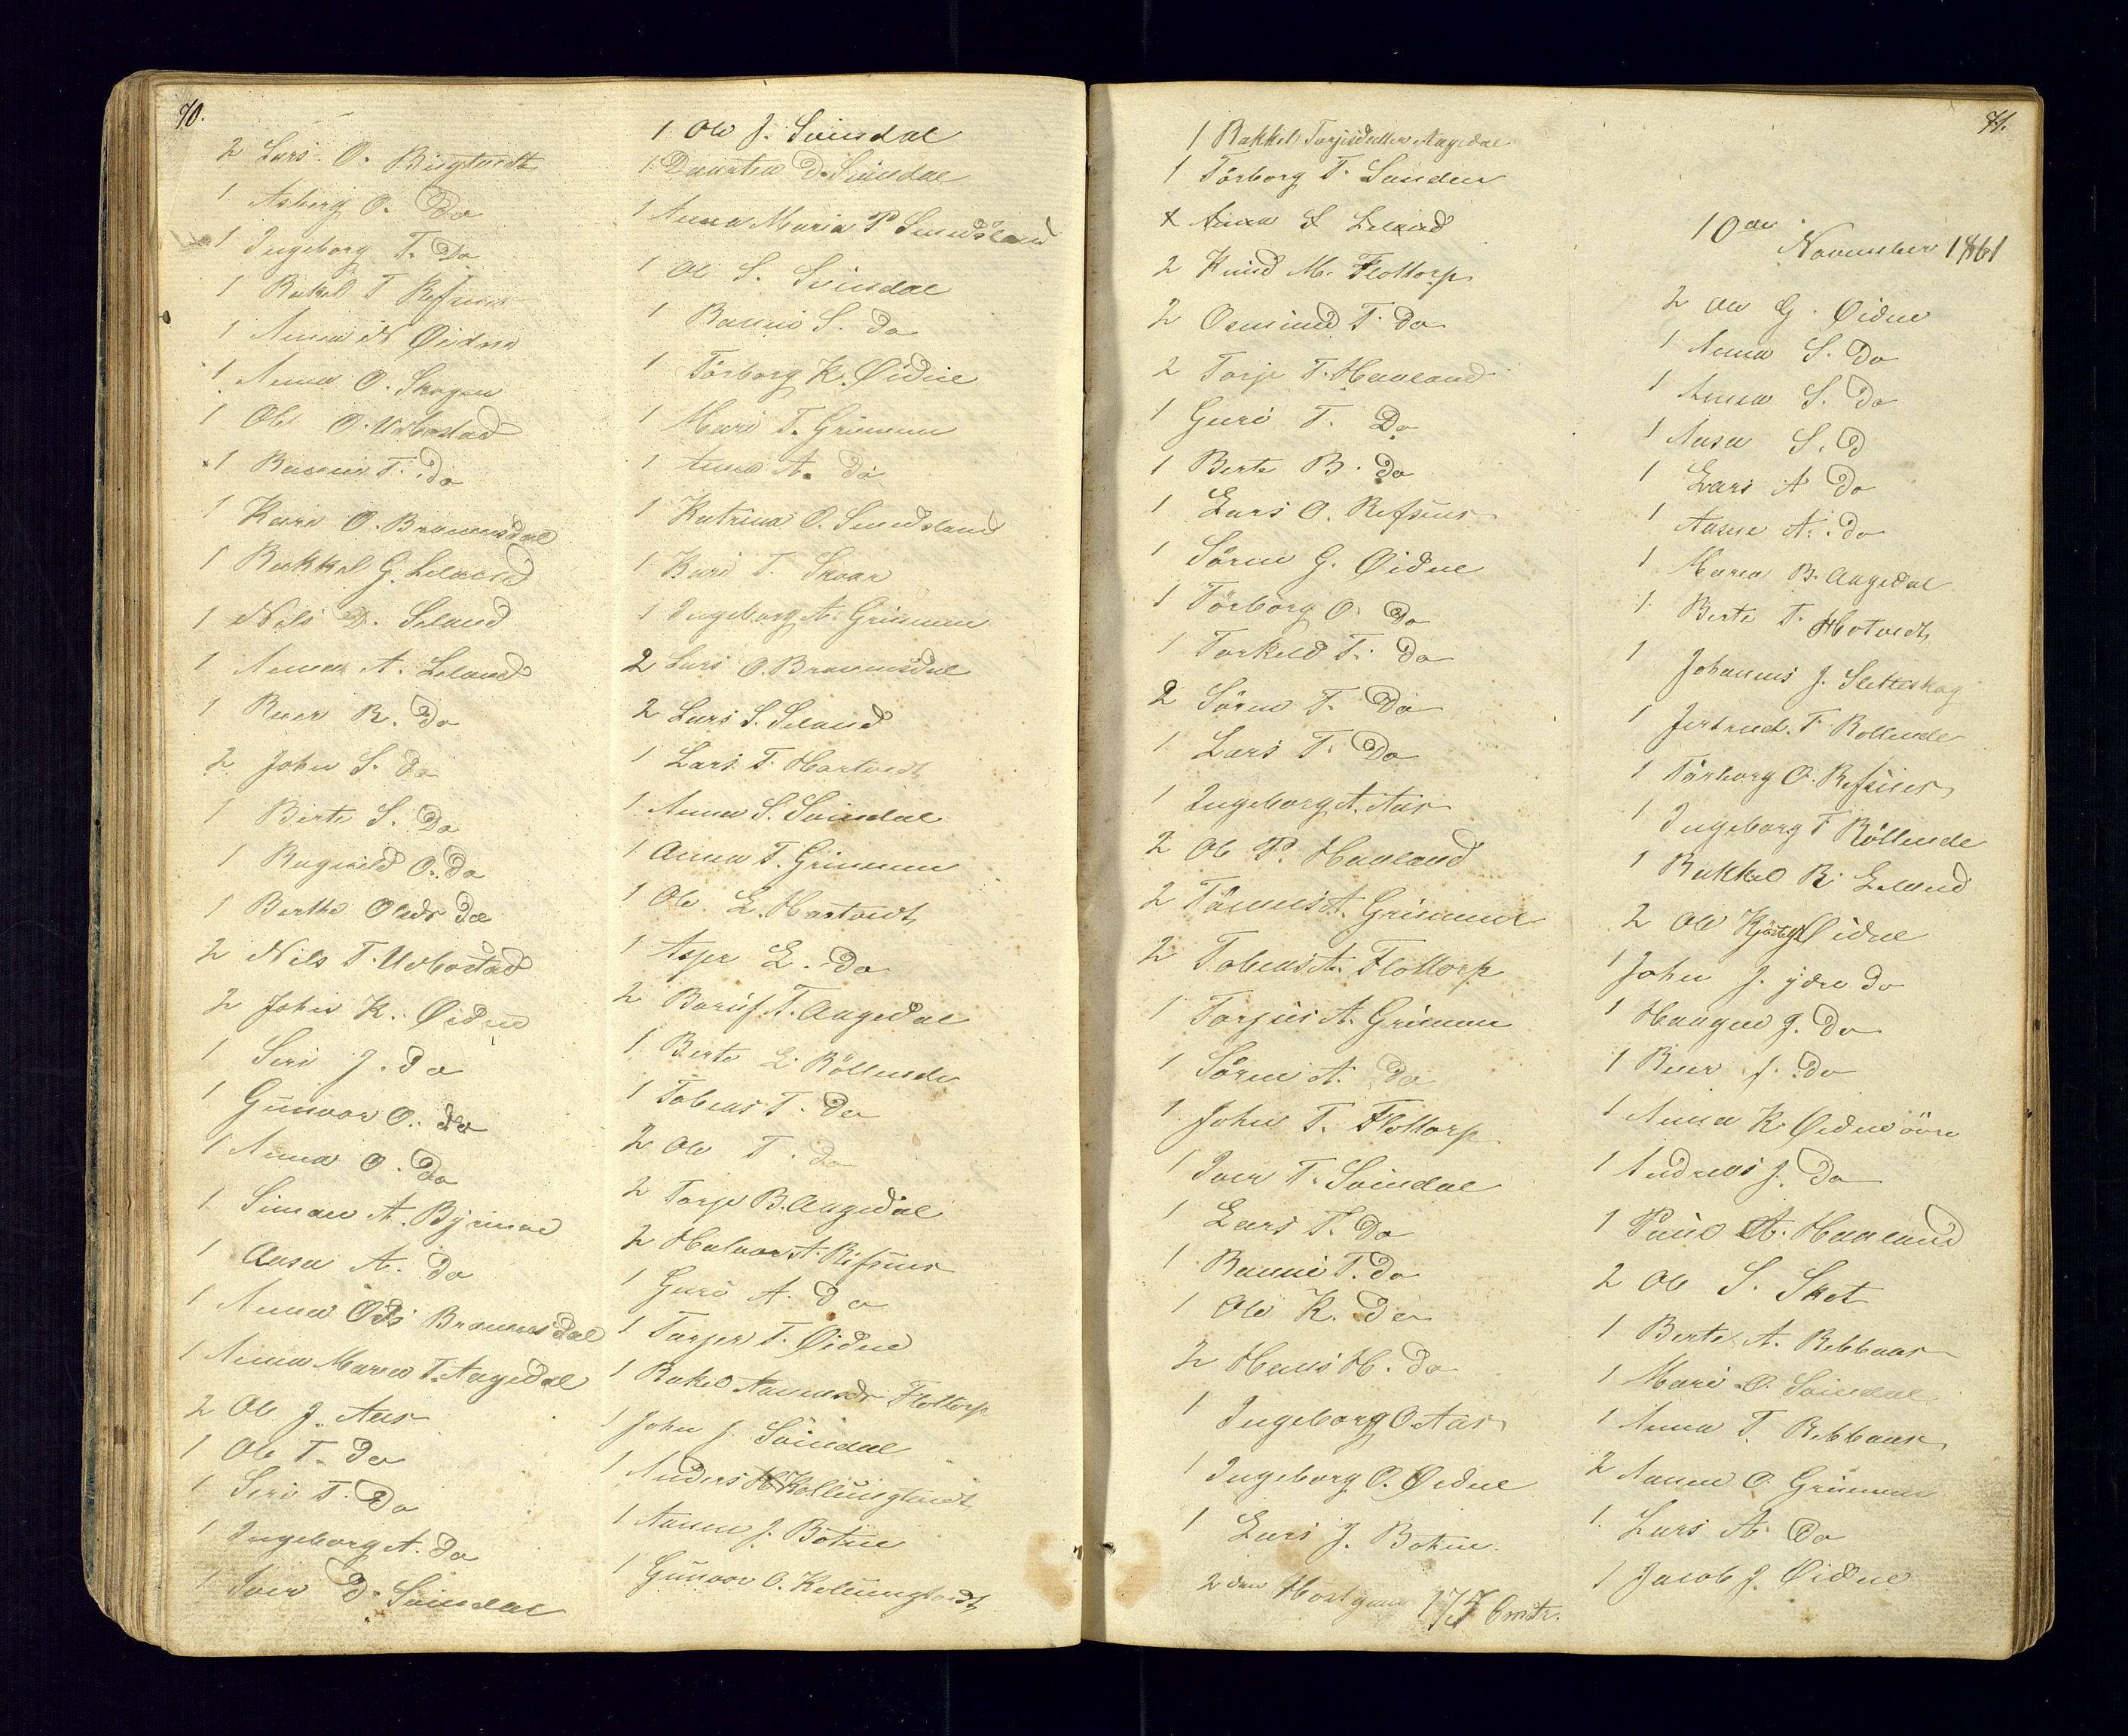 70.
2 Lars O. Birgtvedt
1 Asberg O. Do
1 Ingeborg T. Do
1 Rakel T Refsnes
1 Anna N Øidne
1 Anna O. Skogen
1 Ole O. Udbostad
1 Rannei T. do
1 Kari O. Braunesdal
1 Rakkel G. Leland
1 Nils D. Seland
1 Anna A. Leland
1 Reier R. Do
2 John S. Do
1 Berte S. Do
1 Ragnild O. Do
1 Berthe Olsdr Do
2 Nils T. Udbostad
2 John K. Øidne
1 Siri J. Do
1 Gunvor O. do
1 Anna O. Do
1 Simon A. Byrimoe
1 Aasa A. Do
1 Anna Ods Braunesdal
1 Anna Maria T. Aagedal
2 Ole J. Aas
1 Ole T. Do
1 Siri T. Do
1 Ingeborg A. Do
1 Iver D. Svindal
1 Ole J. Svindal
1 D. Svindal
1 Anna Maria P Smedsland
1 Ole S. Svindal
1 Rannei S. Do
1 Törborg K. Øidne
1 Mari T. Grimmen
1 Anna A. Do
1 Katrina O. Smedsland
1 Kari T. Skaar
1 Ingeborg A. Grimmen
2 Lars O. Braunesdal
2 Lars S. Seland
1 Lars T. Hartvedt
1 Anna S. Svindal
1 Anna T. Grimmen
1 Ole L. Hartvedt
1 Asjer L. Do
2 Borüf T. Aagedal
1 Berte L. Röllende
1 Tobias T. Do
2 Ole T. Do
2 Torje B. Aagedal
2 Halvor A. Refsnes
1 Guro A. Do
1 Tarjer T. Øidne
1 Rakel Aanensdr Flottorp
1 John J. Svindal
1 Anders H Kollungtvedt
1 Aanen J. Botne
1 Gunvor O. Kollungtvedt
71.
1 Rakkel Torjisdatter Aagedal
1 Törborg T. Sanden
1 Anna S Leland
2 Knud M. Flottorp
2 Osmund T. Do
2 Torje T. Haaland
1 Guri T. Do
1 Berte B. Do
1 Lars O. Refsnes
1 Sören G. Øidne
1 Törborg O. Do
1 Torkeld T. Do
2 Sören T. Do
1 Lars T. Do
1 Ingeborg A. Aas
2 Ole P. Haaland
2 Tönnes A. Grimmen
2 Tobias A. Flottorp
1 Torjus A. Grimmen
1 Sören A. Do
1 John T. Flottorp
1 Iver T. Svindal
1 Lars T. Do
1 Rannei T. Do
1 Ole K. Do
2 Hans H. Do
1 Ingeborg O. Aas
1 Ingeborg O. Øidne
1 Lars J. Botne
2den Hostgang 175 Omstr.
10de
November 1861
2 Ole G. Øidne
1 Anna S. Do
1 Anna S. Do
1 Aasa S. D
1 Lars A Do
1 Aasne A. Do
1 Maren B. Aagedal
1 Berte T. Hotvedt
1 Johannes J. Sletteskog
1 Jertrud. T. Rollende
1 Törborg O. Refsnes
1 Ingeborg T Röllende
1 Rakkel R. Leland
2 Ole Kjøstels Øidne
1 John J. ydre Do
1 Haagen J. Do
1 Reier J. Do
1 Anna K. Øidne övre
1 Andreas J. Do
1 Paul A. Haaland
2 Ole S. Sket
1 Berte A. Ribbaas
1 Mari O. Svindal
1 Anna T. Ribbaas
2 Aanen O. Grimmen
1 Lars A. Do
1 Jacob J. Øidne